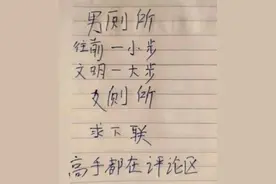 男厕所
往前一小步
文明一大步
女厕所
求下联
高手都在评论区